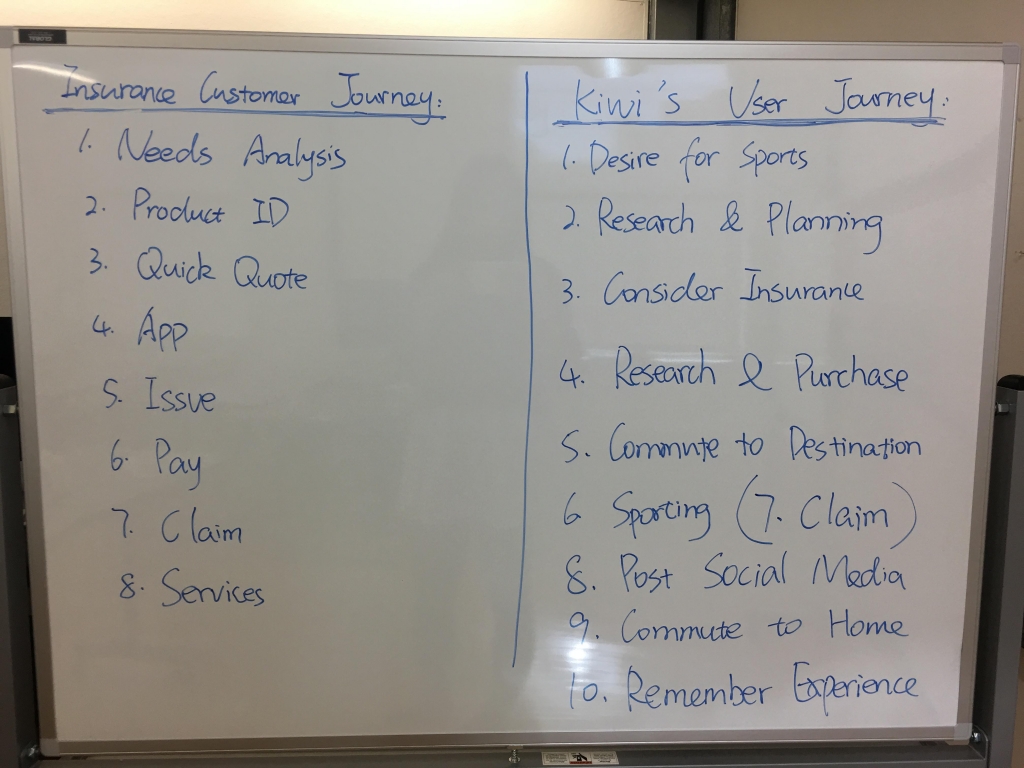 Insurance Customer Journey:
1. Needs Analysis
2. Product ID
3. Quick Quote
4. App
5. Issue
6. Pay
7. Claim
8. Services
Kiwi's User Journey:
1. Desire for Sports
2. Research & Planning
3. Consider Insurance
4. Research & Purchase
5. Commute to Destination
6 Sporting (7. Claim)
8. Post Social Media
9. Commute to Home
10. Remember Experience